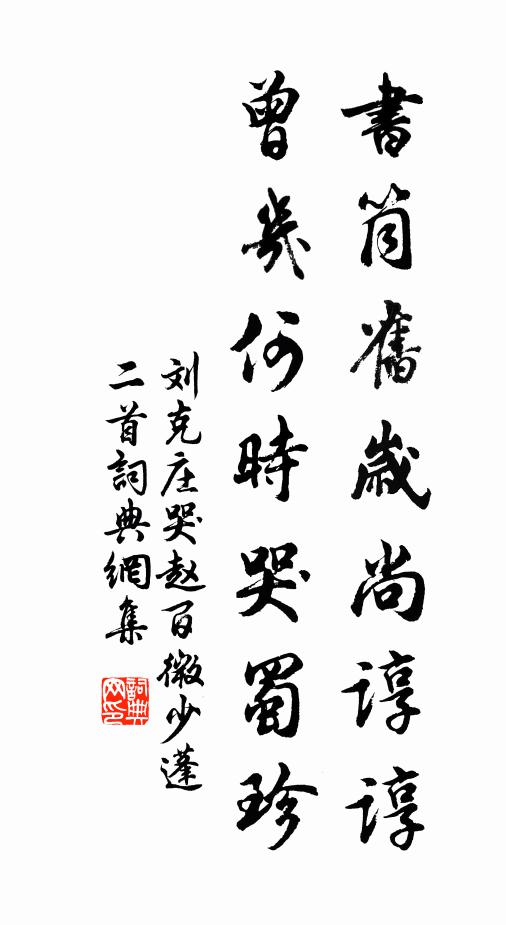 書筒舊歲尚諄諄
曾幾何時哭蜀珍
刘克庄哭赵百微少蓬
二首詞典網集
詞典
网印